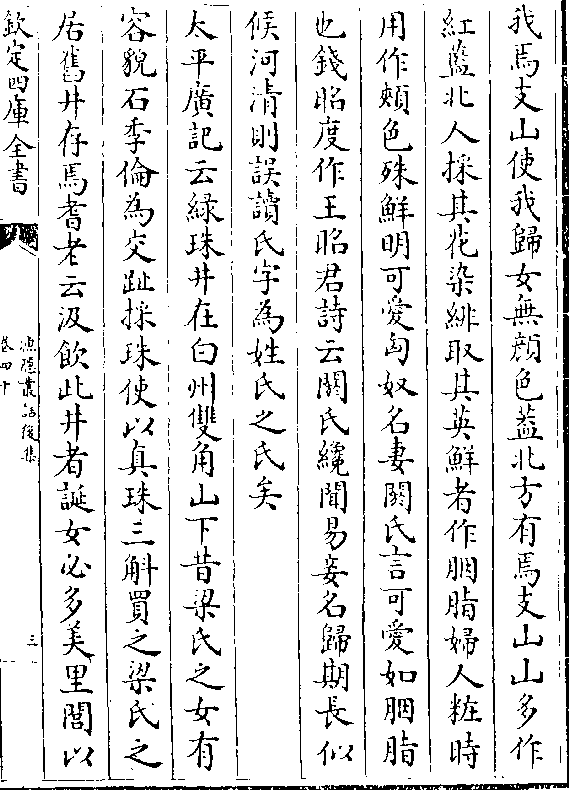 我焉支山使我歸女無顔色葢北方有焉支山山多作
紅藍北人採其花染緋取其英鮮者作胭脂婦人粧時
用作頰色殊鮮明可愛匈奴名妻閼氏言可愛如胭脂
也錢昭度作王昭君詩云閼氏纔聞易妾名歸期長似
候河清則誤讀氏字為姓氏之氏矣
太平廣記云緑珠井在白州雙角山下昔梁氏之女有
容貌石季倫為交趾採珠使以真珠三斛買之梁氏之
居舊井存焉耆老云汲飲此井者誕女必多美里閭以
欽定四庫全書
漁隱叢話後集
卷四十
三